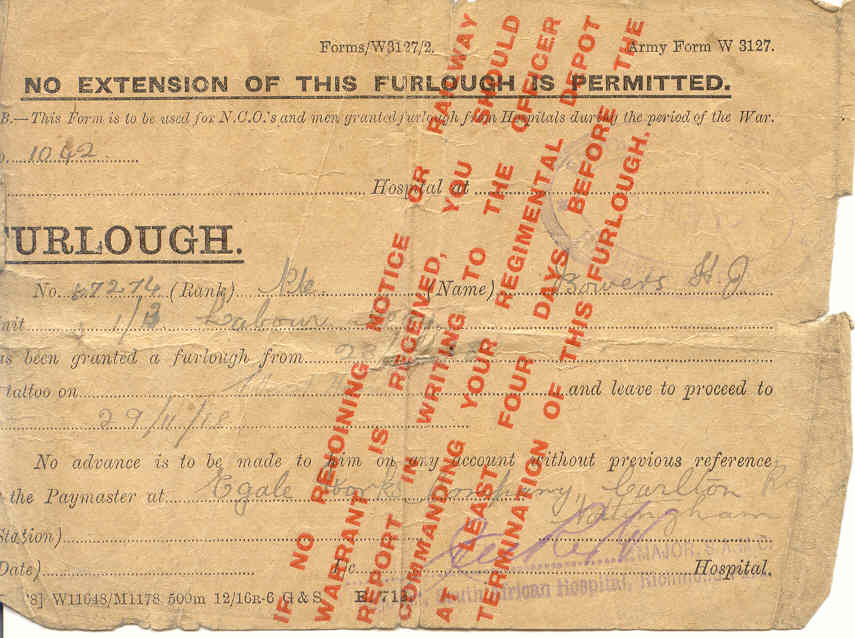 Forms/W3127/2. Army Form W 3127.
NO EXTENSION OF THIS FURLOUGH IS PERMITTED.
B.—This Form is to be used for N.C.O.'s and men granted furlough from Hospitals during the period of the War.
o. 1042
Hospital at
URLOUGH.
No. 67274 (Rank) Pte (Name) Bowers H. J
nit 1/3 Labour
as been granted a furlough from
tattoo on and leave to proceed to
29/11/18
No advance is to be made to him on any account without previous reference
the Paymaster at Egale Works Company, Carlton Rd
Nottingham
Station)
MAJOR, S.A.M.C.
Date) Hospital.
South African Hospital, Richmond
's] W11648/M1178 500m 12/16R-6 G & S. E. 713.
IF NO REJOINING NOTICE OR RAILWAY
WARRANT IS RECEIVED, YOU SHOULD
REPORT IN WRITING TO THE OFFICER
COMMANDING YOUR REGIMENTAL DEPOT
AT LEAST FOUR DAYS BEFORE THE
TERMINATION OF THIS FURLOUGH.